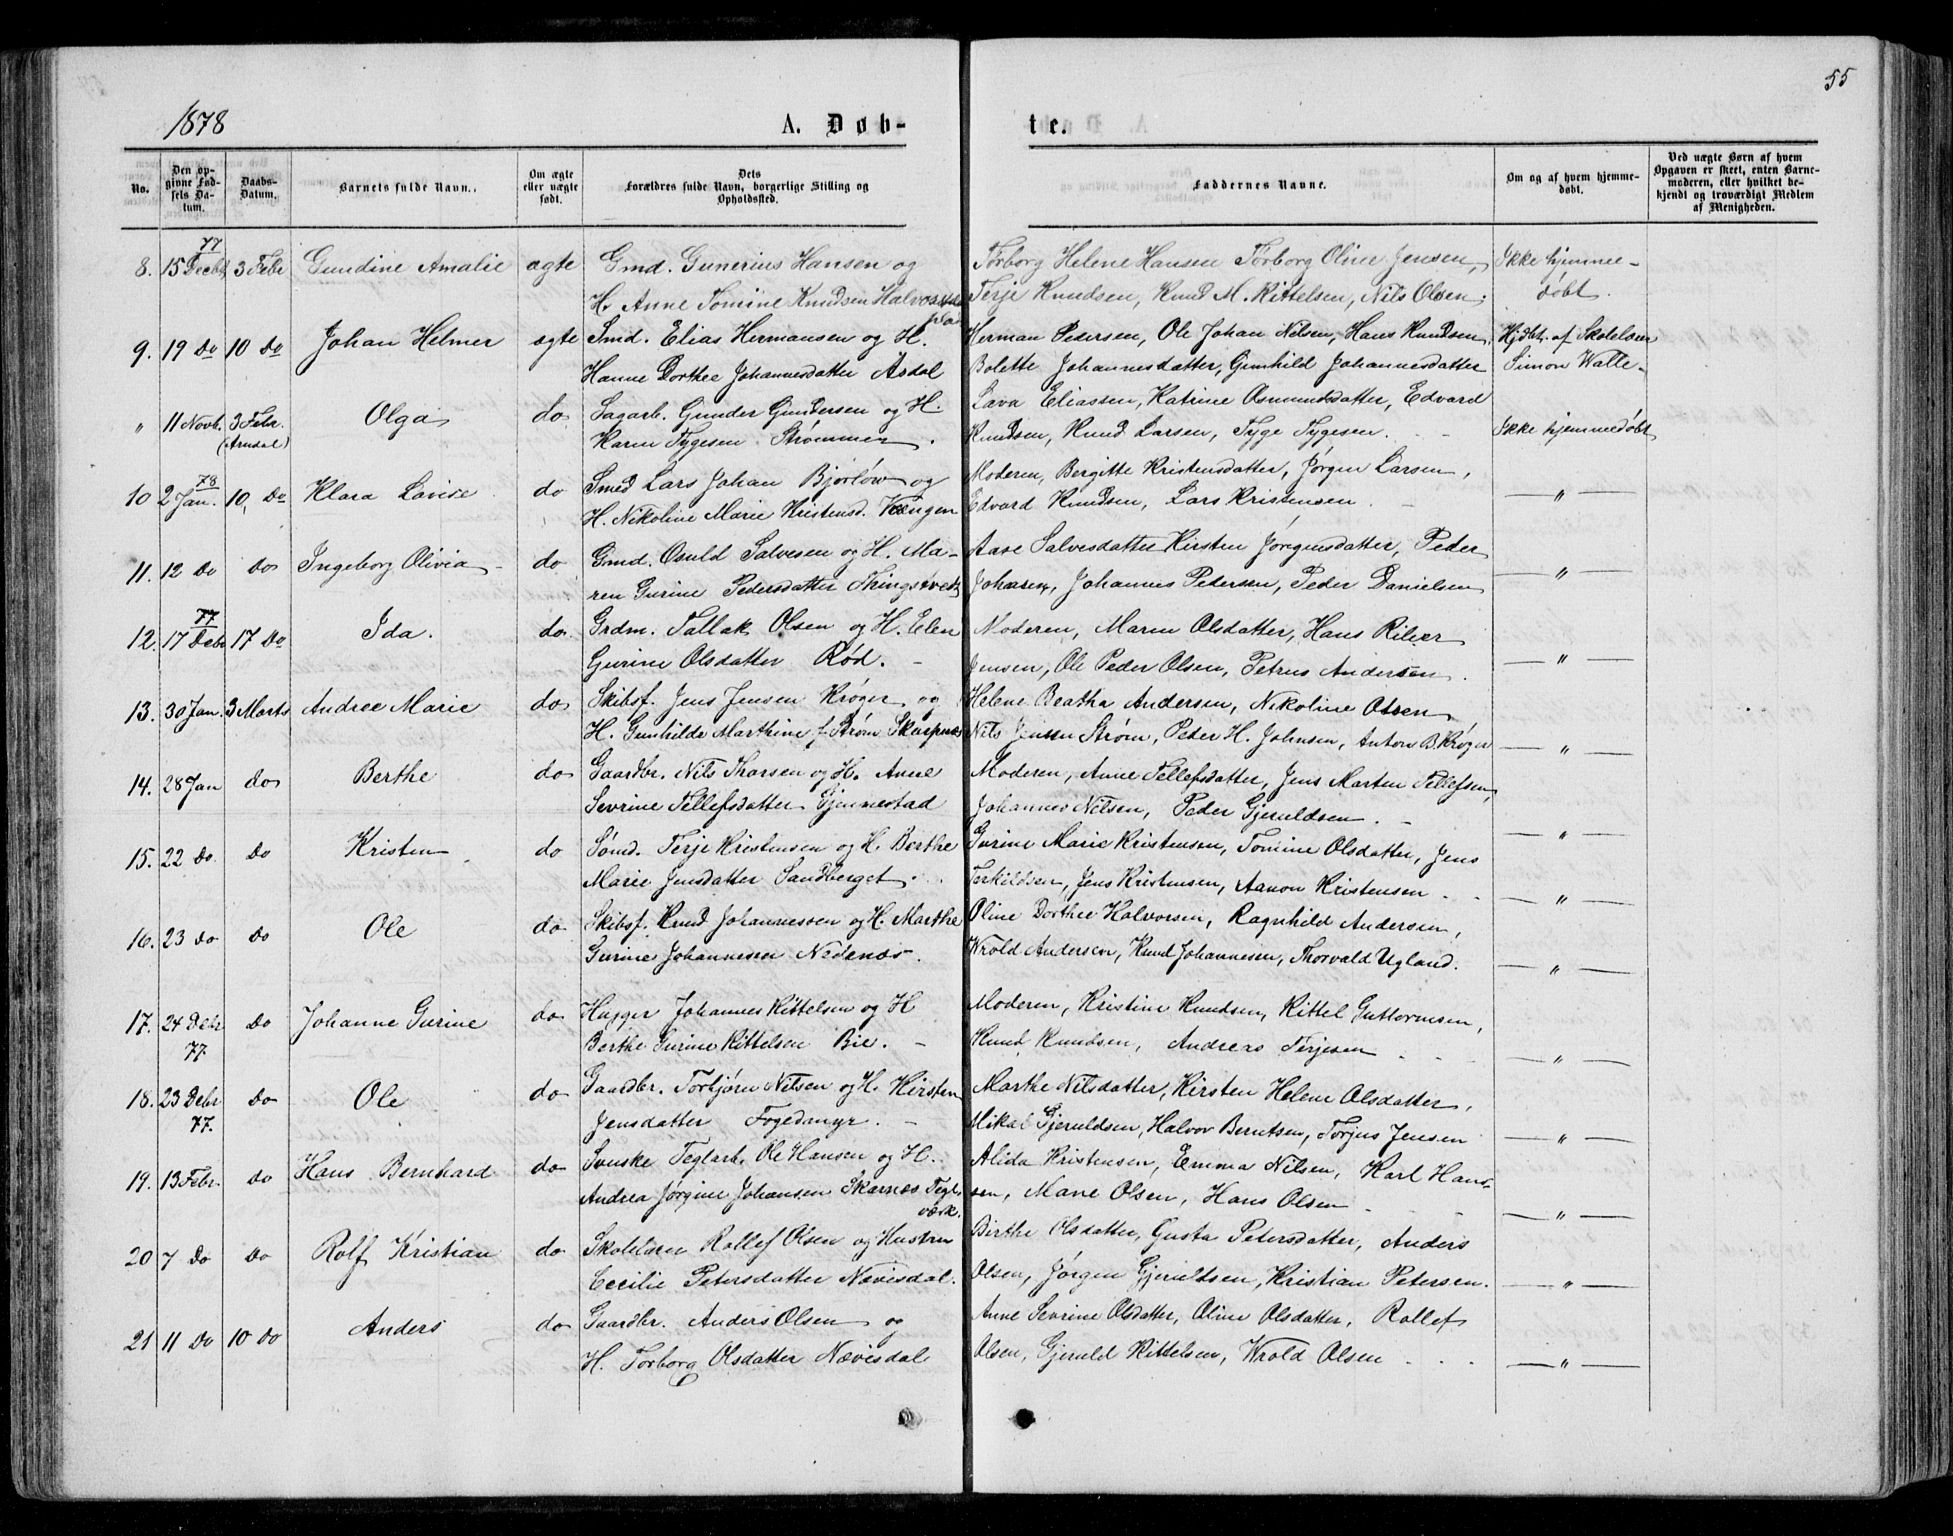 55
1878
A. Døb-
te.
No.
Den op-
givne Fød-
sels Da-
tum.
Daabs-
Datum.
Barnets fulde Navn.
Om ægte
eller uægte
født.
Dets
Forældres fulde Navn, borgerlige Stilling og
Opholdssted.
Faddernes Navne.
Om og af hvem hjemme-
døbt.
Ved uægte Børn af hvem
Opgaven er skeet, enten Barne-
moderen, eller hvilket be-
kjendt og troværdigt Medlem
af Menigheden.
77
8. 15 Decbr 3 Febr Gundine Amalie ægte Gmd. Gunerius Hansen og Torborg Helene Hansen Torborg Oline Jensen, Ikke hjemme-
H. Anne Tomine Knudsen Terje Knudsen, Knud M. Kittelsen, Nils Olsen. døbt.
9. 19 Do 10 Do Johan Helmer ægte Smd. Elias Hermansen og H. Herman Pedersen, Ole Johan Nilsen, Hans Knudsen, Hjdbt. af Skolelærer
Hanne Dorthee Johannesdatter Asdal Bolette Johannesdatter, Gunhild Johannesdatter Simon Walle.
" 11 Novb. 3 Febr. Olga do Sagarb. Gunder Gundersen og H. Lava Eliassen, Katrine Osmundsdatter, Edvard
(Arndal) Karen Tygesen Strømmen. Knudsen, Knud Larsen, Tyge Tygesen. Ikke hjemmedøbt
78
10 2 Jan. 10, Do Klara Lovise do Smed Lars Johan Bjorløw og Moderen, Bergitte Kristensdatter, Jørgen Larsen,
H. Nikoline Marie Kristensd. Vængen Edvard Knudsen, Lars Kristensen. — " —
11. 12 Do Do Ingeborg Olivia do Gmd. Osuld Salvesen og H. Ma- Aase Salvesdatter Kirsten Jørgensdatter, Peder
ren Gurine Pedersdatter Thingstvedt Johansen, Johannes Petersen, Peder Danielsen — " —
77
12. 17 Debr 17 Do Ida. do. Grdm. Tallak Olsen og H. Elen Moderen, Maren Olsdatter, Hans Rilver
Gurine Olsdatter Rød. Jensen, Ole Peder Olsen, Petrus Andersen. — " —
13. 30 Jan. 3 Marts Andree Marie do Skibsf. Jens Jensen Krøger og Helene Beatha Andersen, Nikoline Olsen
H. Gunhilde Marthine f. Strøm Skarpnes Nils Jensen Strøm, Peder H. Johnsen, Anton B. Krøger — " —
14. 28 Jan Do Berthe do Gaardbr. Nils Tharsen og H. Anne Moderen, Anne Tellefsdatter, Jens Marten Tellefsen,
Sevrine Tellefsdatter Gjennestad Johannes Nilsen, Peder Gjeruldsen. — " —
15. 22 Do Do Kristen do Sømd. Terje Kristensen og H. Berthe Gurine Marie Kristensen, Tomine Olsdatter, Jens
Marie Jensdatter Sandberget. Terkildsen, Jens Kristensen, Aanon Kristensen. — " —
16. 23 Do Do Ole do Skibsf. Knud Johannessen og H. Marthe Oline Dorthee Halvorsen, Ragnhild Andersen,
Gurine Johannessen Nedenæs. Wrold Andersen, Knud Johannessen, Thorvald Ugland. — " —
17. 24 Debr Do Johanne Gurine do Hugger Johannes Kittelsen og H Moderen, Kristine Knudsen, Kittel Guttormsen,
77. Berthe Gurine Kittelsen Bie. Knud Knudsen, Andreas Terjesen — " —
18. 23 Debr Do Ole do Gaardbr. Torbjørn Nilsen og H. Kirsten Marthe Nilsdatter, Kirsten Helene Olsdatter,
77. Jensdatter Fogedmyr. Mikal Gjeruldsen, Halvor Berntsen, Torjus Jensen — " —
19. 13 Febr. Do Hans Bernhard do Svenske Teglarb. Ole Hansen og H. Alida Kristensen, Emma Nilsen, Karl Han-
Andrea Jørgine Johansen Skarnæs Tegl- sen, Marie Olsen, Hans Olsen — " —
værk.
20 7 Do Do Rolf Kristian do Skolelærer Rollef Olsen og Hustru Birthe Olsdatter, Gusta Petersdatter, Anders
Cecilie Petersdatter Nævisdal. Olsen, Jørgen Gjerultsen, Kristian Petersen. — " —
21 11 Do 10 Do Anders do Gaardbr. Anders Olsen og Anne Sevrine Olsdatter, Oline Olsdatter, Rollef
H. Torborg Olsdatter Nævisdal Olsen, Gjeruld Kittelsen, Wrold Olsen — " —